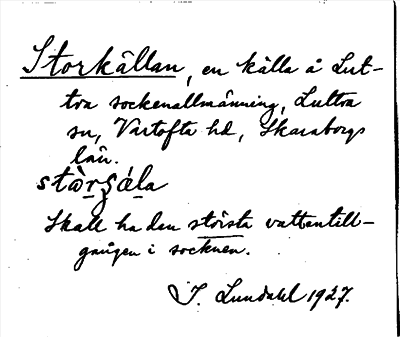 Storkällan, en källa å Lut-
tra sockenallmänning, Luttra
sn, Vartofta hd, Skaraborgs
län.
stàr̠ʂála
Skall ha den största vattentill-
gången i socknen.
J. Lundahl 1927.